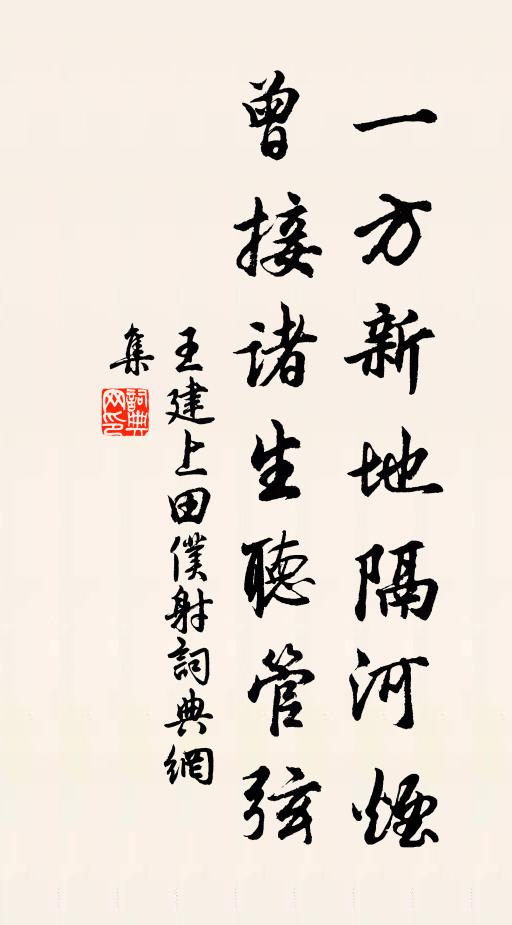 一方新地隔河煙
曾接諸生聽管弦
王建上田僕射詞典網
集
詞典
网印